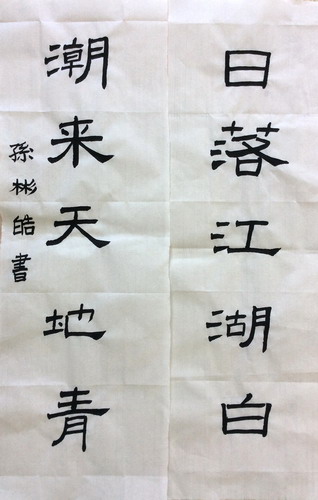 日落江湖白
潮来天地青
孫彬皓書